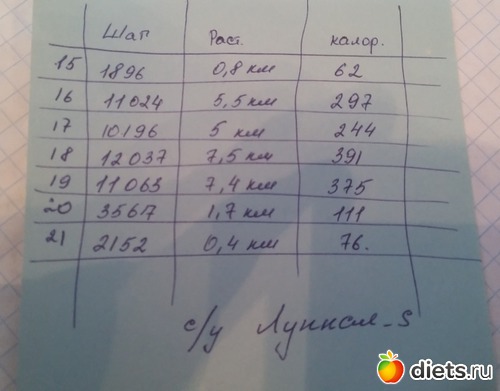 Шаг Раст. калор.
15 1896 0,8 км 62
16 11024 5,5 км 297
17 10196 5 км 244
18 12037 7,5 км 391
19 11063 7,4 км 375
20 3567 1,7 км 111
21 2152 0,4 км 76.
с/у
diets.ru